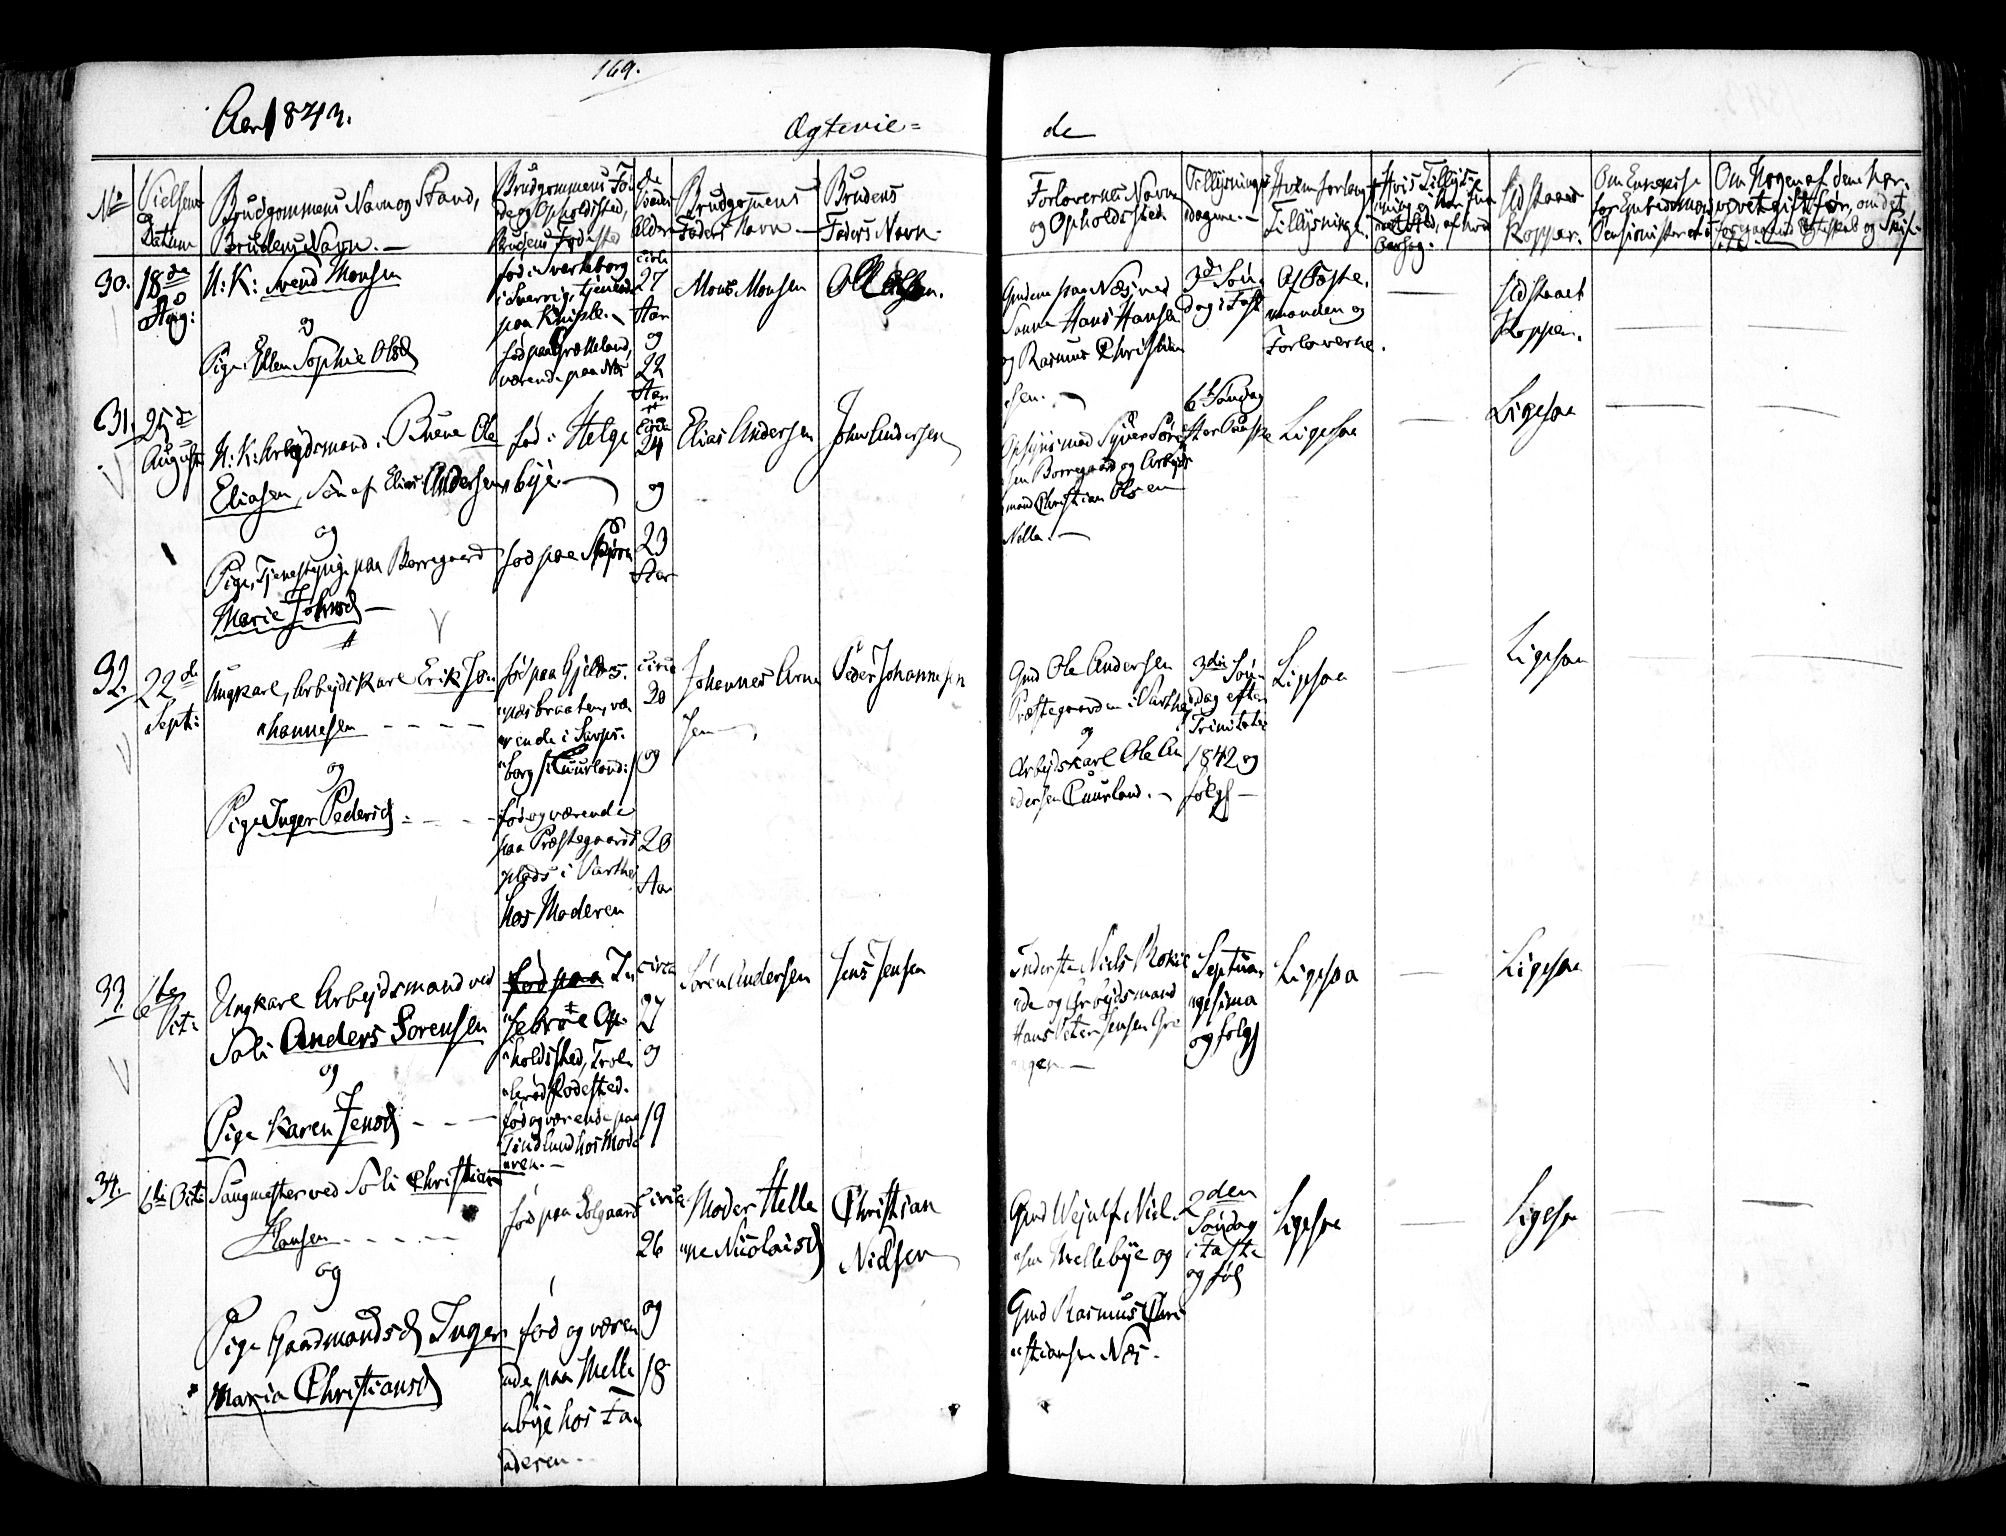 169.
Aar 1843.
Ægtevie=
de
No
Vielsens Datum
Brudgommens Navn og Stand,
Brudens Navn. —
Brudgommens Fø-
de og Opholdssted,
Brudens Fødested
Brudgommens
Faders Navn —
Brudens
Faders Navn.
Forlovernes Navn
og Opholdssted
Tillysnings
dagene. —
Hvem forlangt
Tillysning.
Hvis Tillys-
ning ei har fun-
det Sted, af hvad
Aarsag.
Idstaaede
Kopper.
30.
18de
Aug:
U: K: Svend Monsen
og
Pige Ellen Sophie Olsd
født i Sverteborg
i Sverrig, tjenende
paa Kniple. —
født paa Grælleland,
værende paa Næs
circa
27
Aar
og
22
Aar
Mons Monsen
Ole Olsen.
Gmdene paa Næs ved
Sanne Hans Hansen
og Rasmus Christian
sen. —
3die Søn-
dag i Fast
Af Præste-
manden og
Forloverne.
Idstaaet
Kopper.
31.
25de
August
U: K: Arbeydsmand i Buene Ole
Eliasen, Søn af Elias Andersen
og
Pige, Tjenestepige paa Borregaard
Marie Johnsd —
fød i Helge
"bye. —
fød paa Skjøren
circa
24
og
23
Aar
Elias Andersen
John Andersen
Opsynsmand Syver Søren
sen Borregaard og Arbeyds
mand Christian Olsen
Nelle. —
6te Søndag
efter Paaske
Ligesaa
Ligesaa
32.
22de
Sept:
Ungkarl, Arbeydskarl Erik Jo-
"hannesen
og
Pige Inger Pedersd
fød paa Gjelds-
"næsbraaten, væ-
rende i Sarps-
"borg /: Cuurland:/
fød og værende
paa Præstegaards
plads i Varthei
hos Moderen
circa
20
og
20
Aar
Johannes Arne
sen
Peder Johannesen
Gmd Ole Andersen
Præstegaarden i Varthei
og
Arbeydskarl Ole An
dersen Cuurland. —
3die Søn-
dag efter
Trinitatis
1842 og
følgd —
Ligesaa
Ligesaa
33.
6te
Oct:
Ungkarl Arbeydsmand ved
Soli Anders Sorensen
og
Pige Karen Jensd
fød paa In-
"gebröt Op-
"holdssted, Trole
"berød Fødested.
fød og værende paa
Tindlund hos Mode
"ren. —
circa
27
og
19
Søren Andersen
Jens Jensen
Inderste Niels Rokke
de og Arbeydsmand
Hans Peter Jensen Gre
"gen —
Septua-
"gesima
og følgd
Ligesaa
Ligesaa
34.
6te Oct:
Saugmester ved Soli Christian
Hansen
og
Pige Gaardmandsd Inger
Maria Christiansd
fød paa Solgaard
fød og væren
"de paa Melle
"bye hos Fa-
"deren —
circa
26
og
18
Moder Helle
"ne Nicolaisd
Christian
Nielsen
Gmd Wejulf Niel-
"sen Mellebye og
Gmd Rasmus Chri
"stiansen Næs.
2den
Søndag
i Faste
og følg
Ligesaa
Ligesaa